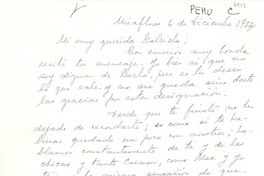 PERU
Miraflores 6 de diciembre 1954
Mi muy querida Gabriela:
Con emoción muy honda
recibí tu mensaje. Yo sé que no
soy digna de
lo que vales, y no me queda sino darte
las gracias por esta designación.
Desde que te fuiste no he
dejado de recordarte, es como si te hu-
bieras quedado con nosotros; ha-
blamos constantemente de ti y de las
chicas y tanto Carmen, como Mac y yo
la misma sensación de que